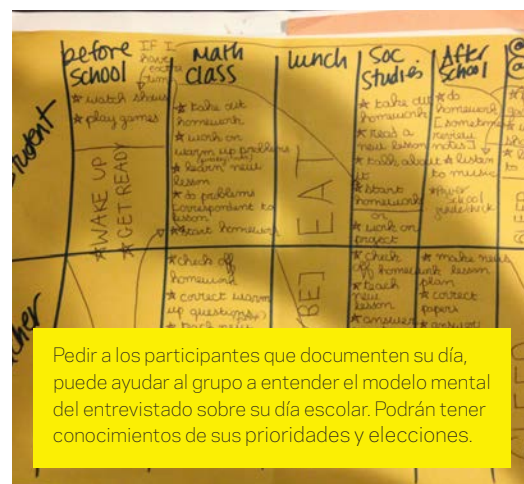 before
school
IF I
have
extra
time
★ watch shows
★ play games
★ WAKE UP
★ GET READY
Math
class
★ take out
homework
★ work on
warm up problems
★ learn new
lesson
★ do problems
correspondent to
lesson
★ start homework
lunch
EAT
Soc
Studies
★ take out
homework
★ read a
new lesson
★ talk about
it
★ start
homework
or
work on
project
After
School
★ do
homework
[sometimes
review
notes]
★ listen
to music
★ check off
homework
★ correct warm
up questions
★ check
off homework
★ teach
new
lesson
★ answer
★ make new
lesson
plan
★ correct
papers
Pedir a los participantes que documenten su día,
puede ayudar al grupo a entender el modelo mental
del entrevistado sobre su día escolar. Podrán tener
conocimientos de sus prioridades y elecciones.